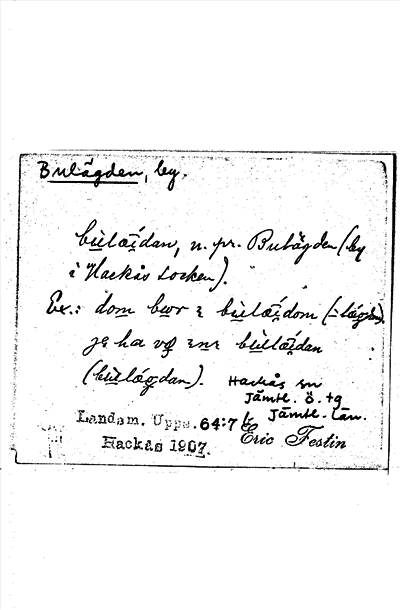 Bulägden, by.
bulæidan, n. pr. Bulägden (by
i Hackås socken).
Ex.: dom bwr i bulæidom (-lægdom).
ja ha vɷ ini bulæidan
(bulægdan).
Hackås sn
Jämtl. ö. tg
Jämtl. län.
Landsm. Upps. 64:7
Hackås 1907.
Eric Festin